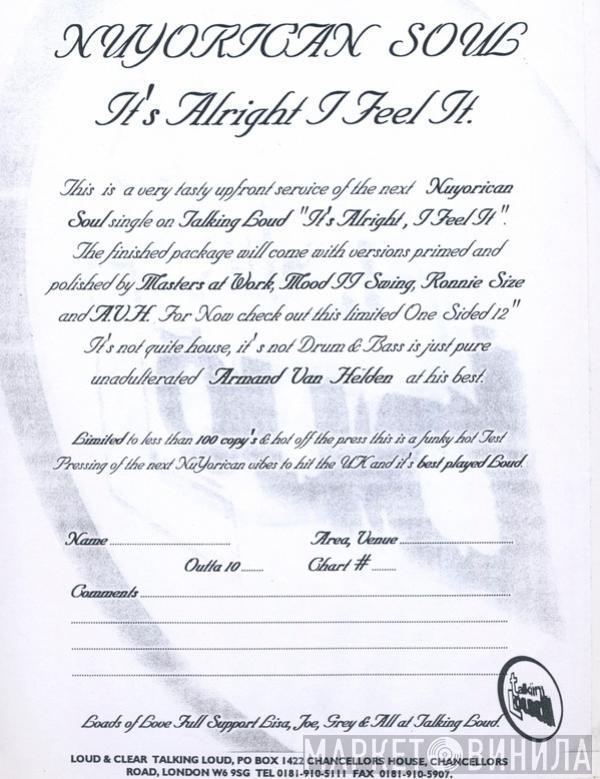 NUYORICAN SOUL
It's Alright I Feel It.
This is a very tasty upfront service of the next Nuyorican
Soul single on Talking Loud "It's Alright, I Feel It".
The finished package will come with versions primed and
polished by Masters at Work, Mood II Swing, Ronnie Size
and A.V.H. For Now check out this limited One Sided 12"
It's not quite house, it's not Drum & Bass is just pure
unadulterated Armand Van Helden at his best.
Limited to less than 100 copy's & hot off the press this is a funky hot Test
Pressing of the next NuYorican vibes to hit the UK and it's best played Loud.
Name Area, Venue
Outta 10 Chart #
Comments
talkin loud
Loads of Love Full Support Lisa, Joe, Grey & All at Talking Loud.
LOUD & CLEAR TALKING LOUD, PO BOX 1422 CHANCELLORS HOUSE, CHANCELLORS
ROAD, LONDON W6 9SG TEL 0181-910-5111 FAX 0181-910-5907.
МАРКЕТ ВИНИЛА